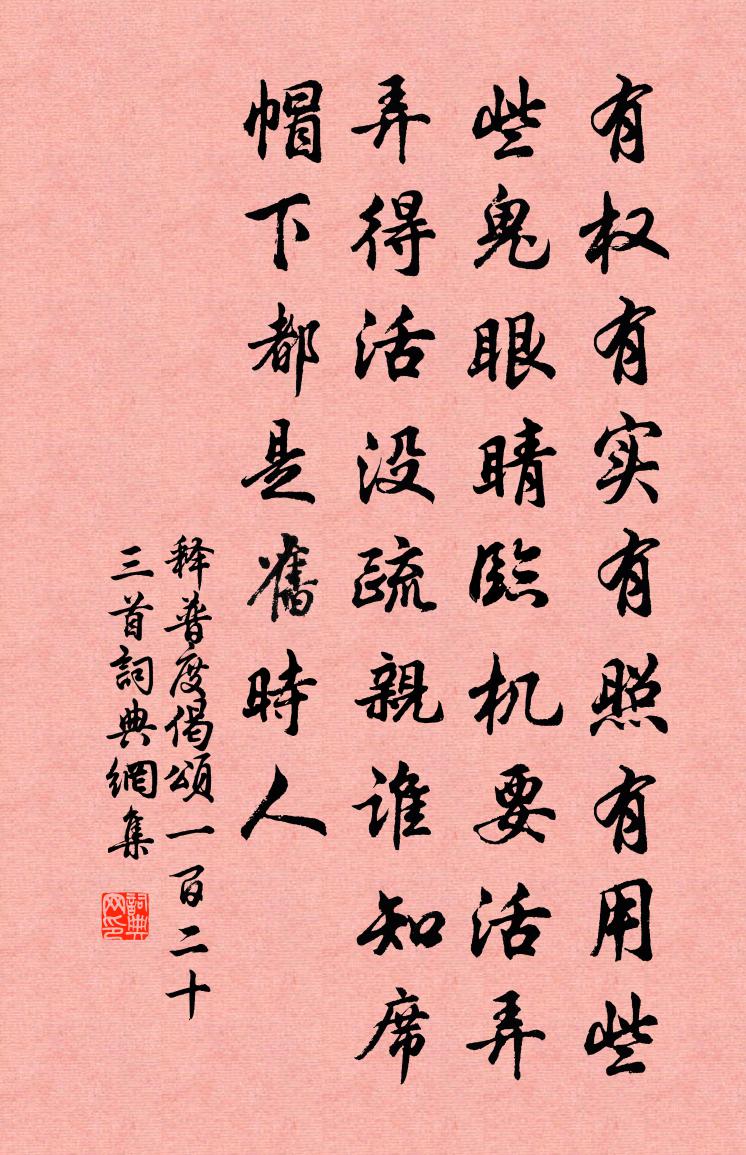 有权有实有照有用些
些鬼眼睛临机要活弄
弄得活没疏親谁知席
帽下都是舊時人
释普度偈頌一百二十
三首詞典網集
詞典网印